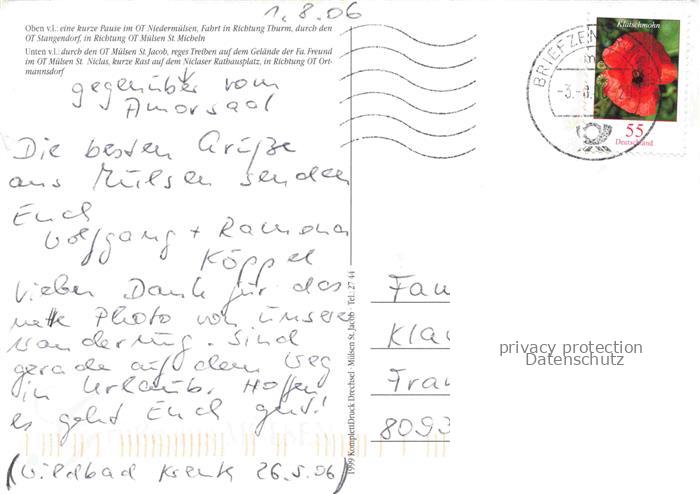 1.8.06
Oben v.l.: eine kurze Pause im OT Niedermülsen, Fahrt in Richtung Thurm, durch den
OT Stangendorf, in Richtung OT Mülsen St. Micheln
Unten v.l.: durch den OT Mülsen St. Jacob, reges Treiben auf dem Gelände der Fa. Freund
im OT Mülsen St. Niclas, kurze Rast auf dem Niclaser Rathausplatz, in Richtung OT Ort-
mannsdorf
gegenüber vom
Amorsaal
Die besten Grüße
aus Mülsen senden
Euch
Wolfgang + Ramona
Köppel
Vielen Dank für das
nette Photo von unserer
Wanderung. Sind
gerade auf dem Weg
in Urlaub. Hoffen
es geht Euch gut!
(Wildbad Kreuth 26.5.06)
1999 KomplettDruck Drechsel · Mülsen St. Jacob · Tel.: 27 44
Klatschmohn
55
Deutschland
BRIEFZEN
Fam
Klau
Fran
8093
privacy protection
Datenschutz